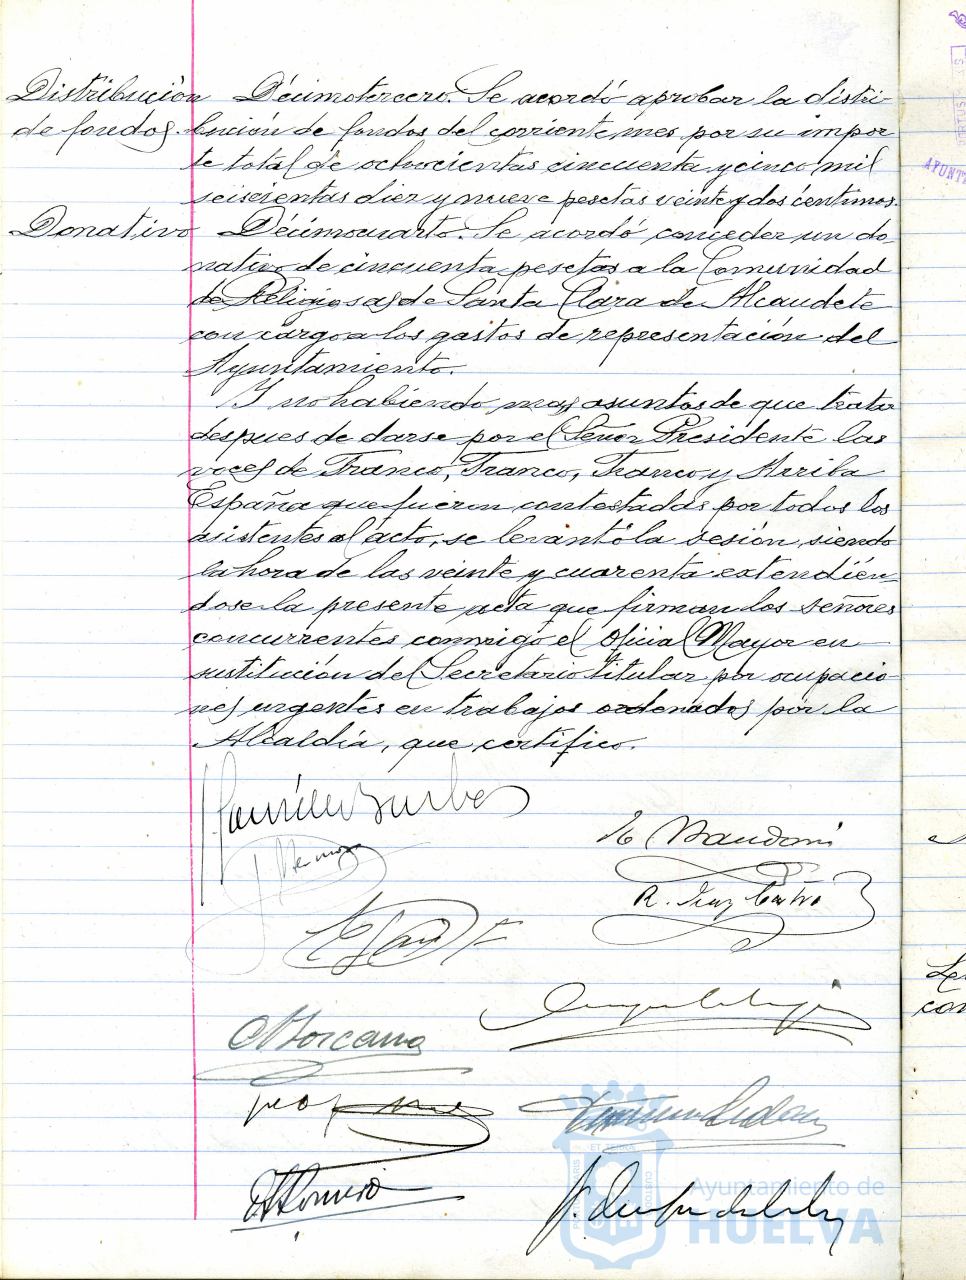 Distribución
de fondos.
Décimotercero. Se acordó aprobar la distri-
bución de fondos del corriente mes por su impor
te total de ochocientas cincuenta y cinco mil
seiscientas diez y nueve pesetas veinte y dos céntimos.
Donativo
Décimocuarto. Se acordó conceder un do-
nativo de cincuenta pesetas a la Comunidad
de Religiosas de Santa Clara de Alcaudete
con cargo a los gastos de representación del
Ayuntamiento.
Y no habiendo mas asuntos de que tratar
despues de darse por el Señor Presidente las
voces de Franco, Franco, Franco y Arriba
España que fueron contestadas por todos los
asistentes al acto, se levantó la sesión, siendo
la hora de las veinte y cuarenta extendién-
dose la presente acta que firman los señores
concurrentes conmigo el Oficial Mayor en
sustitución del Secretario titular por ocupacio-
nes urgentes en trabajos ordenados por la
Alcaldía, que certifico.
Ayuntamiento de
HUELVA